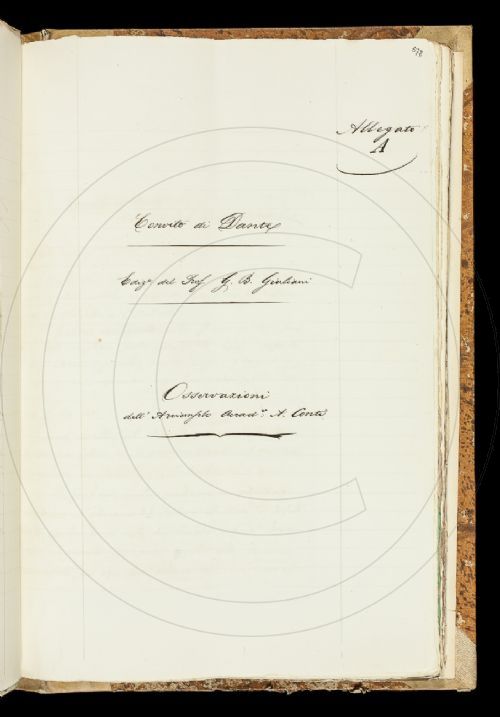 678
Allegato
A
Convito di Dante
Ediz.e del Prof. G. B. Giuliani
Osservazioni
dell' Accad.o A. Conti